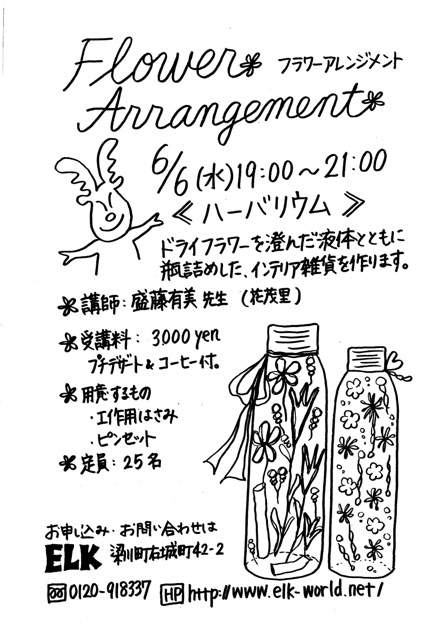 Flower フラワーアレンジメント
Arrangement
6/6(水)19:00～21:00
《ハーバリウム》
ドライフラワーを澄んだ液体とともに
瓶詰めした、インテリア雑貨を作ります。
講師:盛藤有美先生 (花茂里)
受講料: 3000yen
プチデザート&コーヒー付。
用意するもの
・工作用はさみ
・ピンセット
定員:25名
お申し込み・お問い合わせは
ELK 梁川町右城町42-2
0120-918337 HP http://www.elk-world.net/